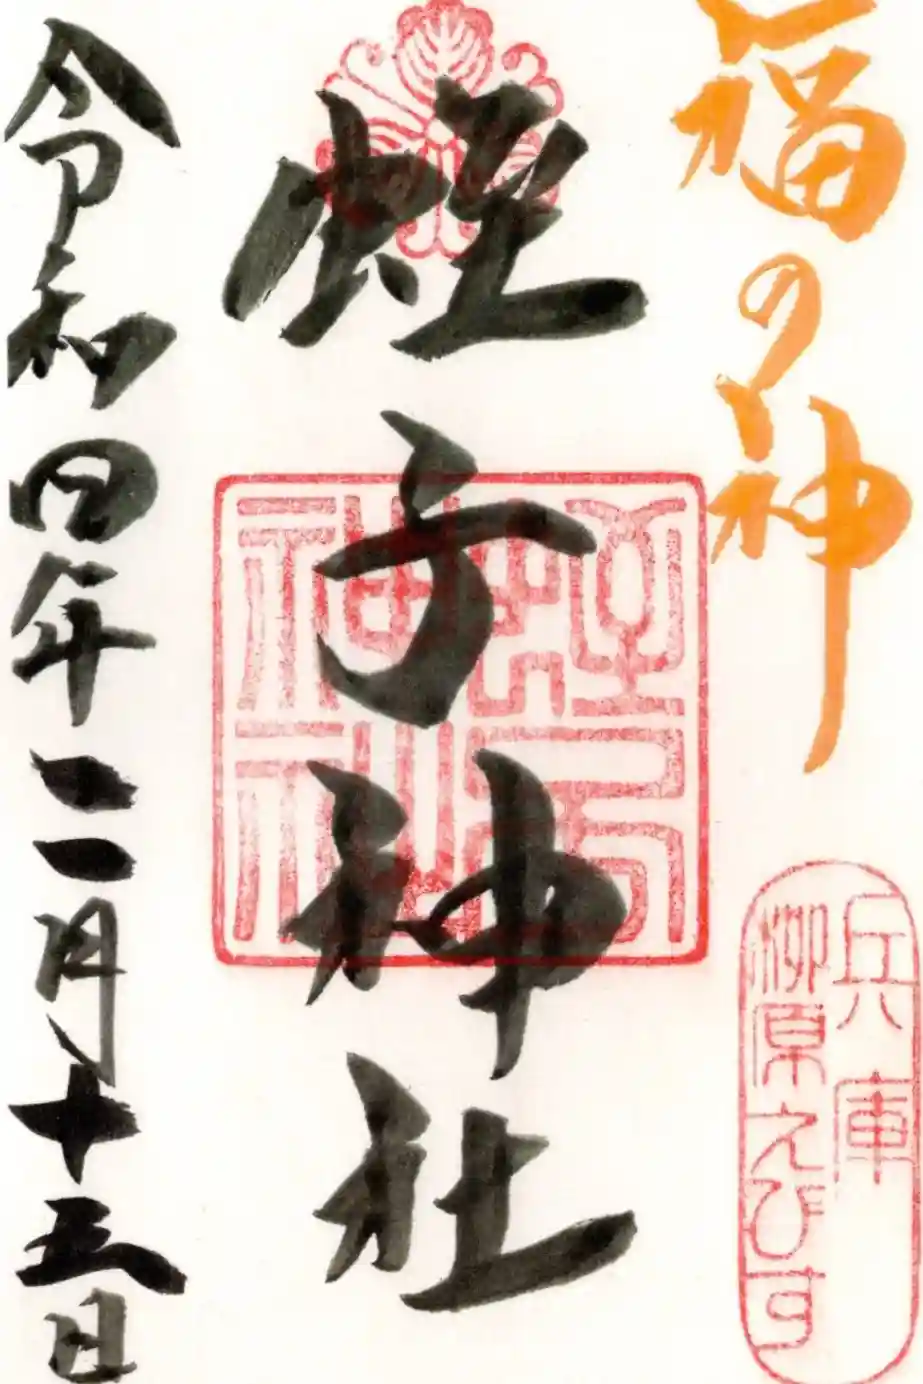 福の神
兵庫
柳原えびす
蛭子神社
蛭子
神社
令和四年二月十五日